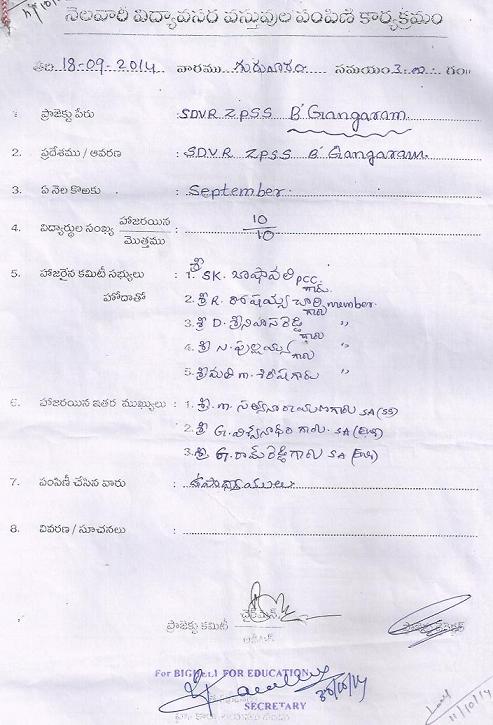 నెలవారీ విద్యావసర వస్తువుల పంపిణీ కార్యక్రమం
తేది 18-09-2014 వారము గురువారం సమయం 3.00 గం॥
1. ప్రాజెక్టు పేరు : SDVR ZPSS B' Gangaram
2. ప్రదేశము / ఆవరణ : SDVR ZPSS B' Gangaram.
3. ఏ నెల కొఱకు : September.
4. విద్యార్థుల సంఖ్య హాజరయిన / మొత్తము : 10/10
5. హాజరైన కమిటీ సభ్యులు : 1. శ్రీ SK. బాషావలి గారు PCC.
హోదాతో 2. శ్రీ R. రోషయ్య చారి గారు member.
3. శ్రీ D. శ్రీనివాసరెడ్డి గారు "
4. శ్రీ న. పుల్లయ్య గారు "
5. శ్రీమతి m. శిరీష గారు "
6. హాజరయిన ఇతర ముఖ్యులు : 1. శ్రీ. m. సత్యనారాయణ గారు SA (SS)
2. శ్రీ G. విశ్వనాథం గారు. SA (Eng)
3. శ్రీ G. రామిరెడ్డి గారు SA (Eng)
7. పంపిణీ చేసిన వారు : ఉపాధ్యాయులు
8. వివరణ / సూచనలు :
ప్రాజెక్టు కమిటీ చైర్మన్
For BIGHELP FOR EDUCATION
SECRETARY
30/10/14